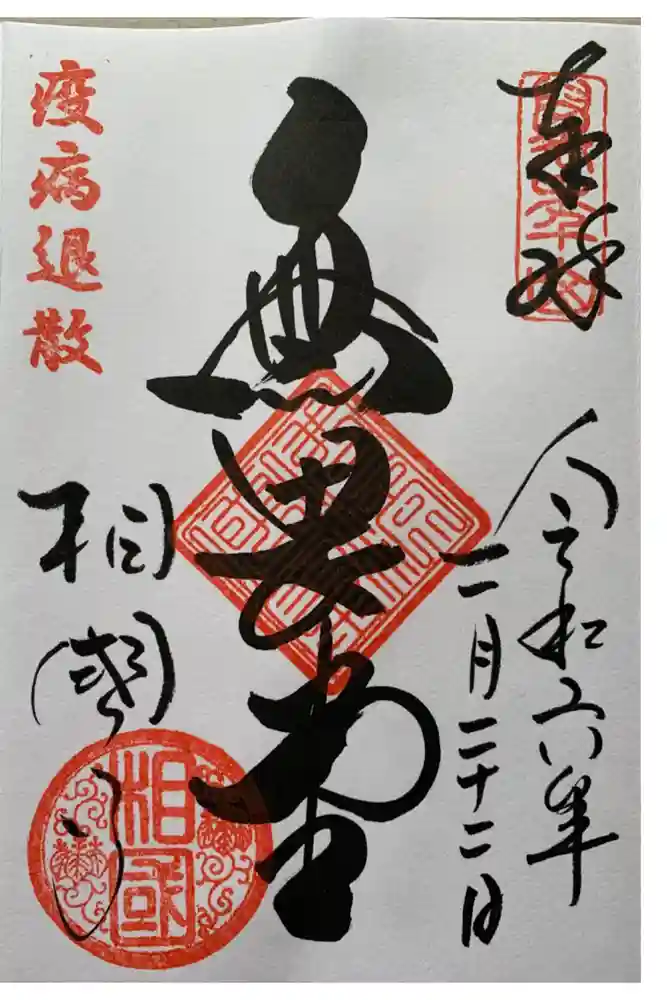 奉拝
令和六年
二月二十二日
無畏堂
疫病退散
相國寺
相國